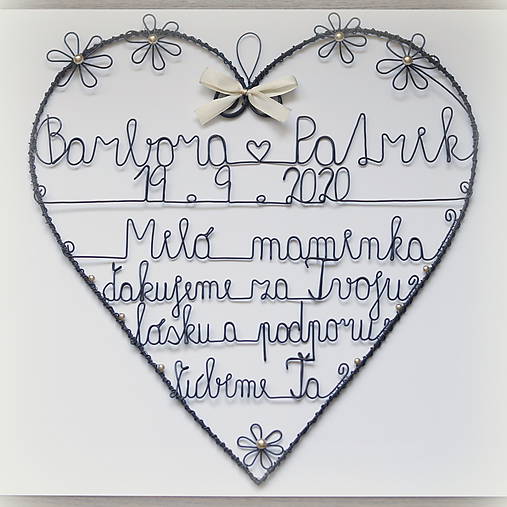 Barbora ♡ Patrik
19.9.2020
Milá maminka
ďakujeme za Tvoju
lásku a podporu
ľúbime Ťa